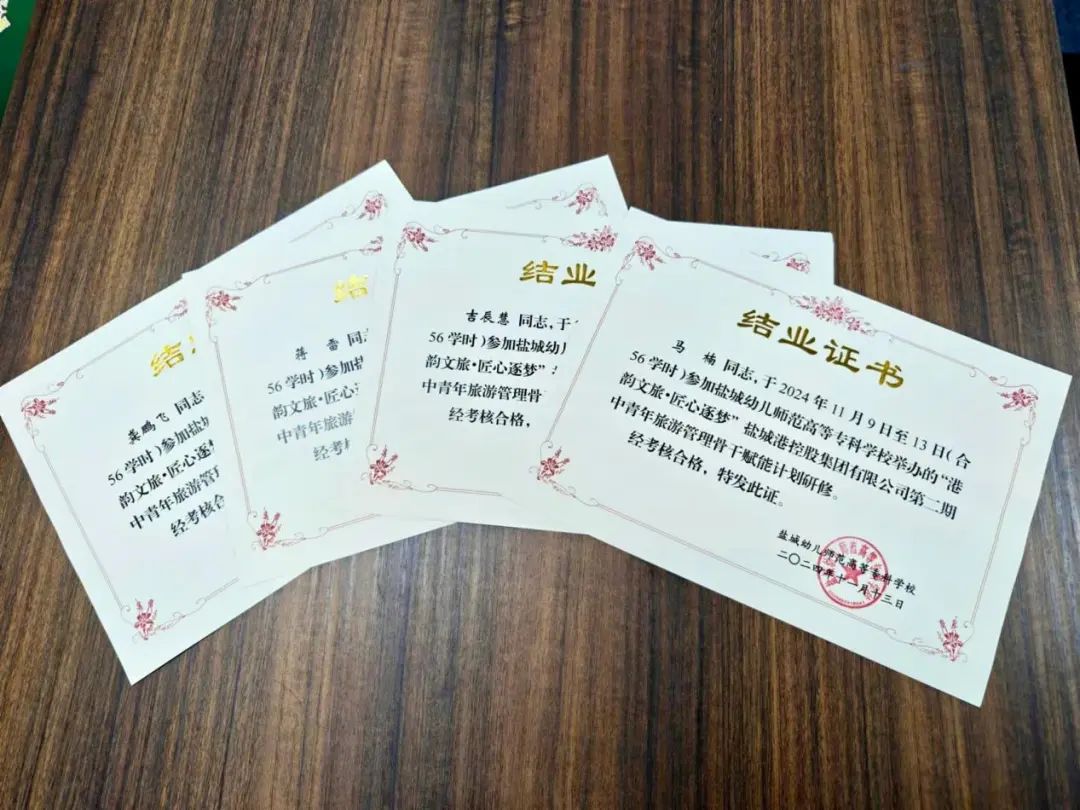 结
龚鹏飞 同志
56学时)参加盐城
韵文旅·匠心逐梦
中青年旅游管理
经考核合
结
蒋 雷 同志
56学时)参加盐城
韵文旅·匠心逐梦
中青年旅游管理
经考
结业
吉辰慧 同志，于
56学时)参加盐城幼儿
韵文旅·匠心逐梦”
中青年旅游管理骨干
经考核合格，
结业证书
马 楠 同志，于2024年11月9日至13日(合
56学时)参加盐城幼儿师范高等专科学校举办的“港
韵文旅·匠心逐梦”盐城港控股集团有限公司第二期
中青年旅游管理骨干赋能计划研修。
经考核合格，特发此证。
盐城幼儿师范高等专科学校
二〇二四年十一月十三日